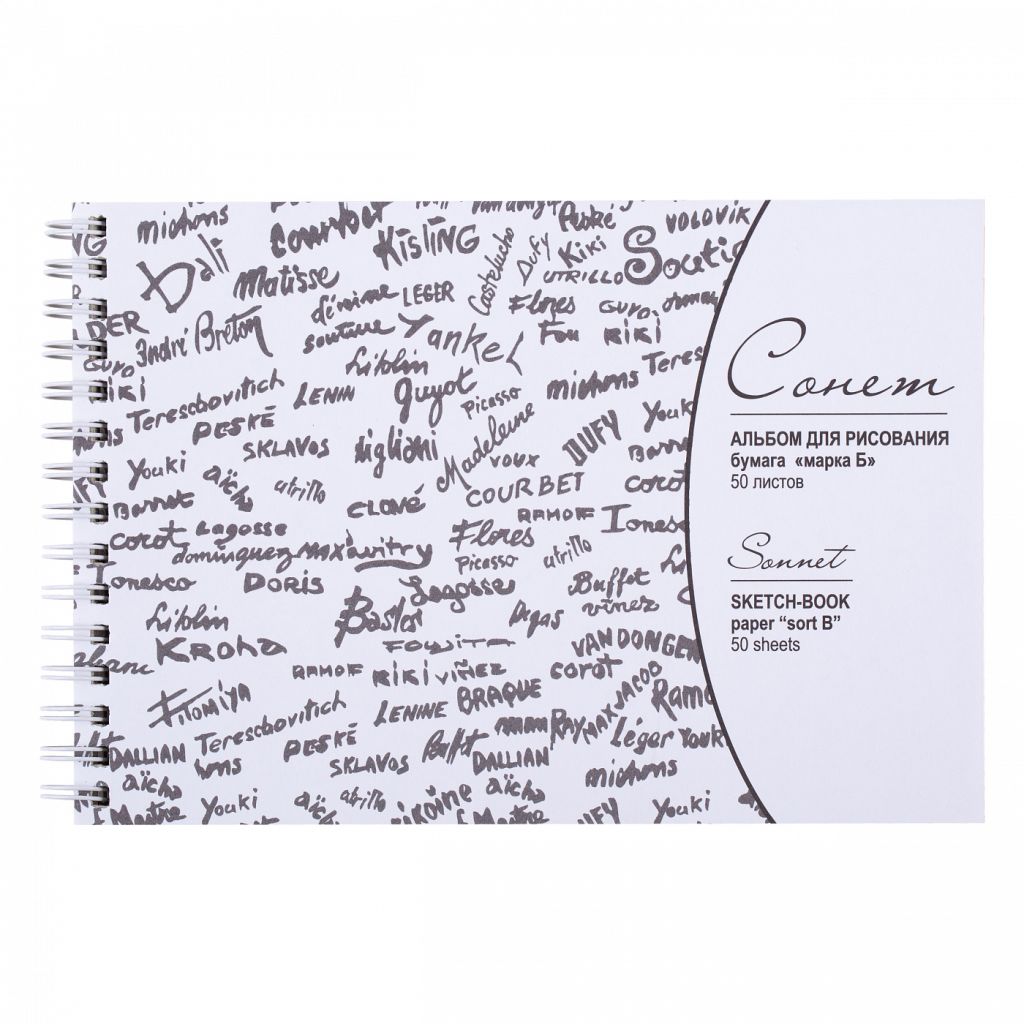 michons
courbet
Kisling
Peské
VOLOVIK
Dali
Matisse
Castelucho
Dufy
Kiki
UTRILLO
Soutin
LEGER
Flores
GUYO
DER
André Breton
soutine
Yankel
Fou
KIKI
Liblin
Teres
Tereschovitch
LENIN
Guyot
Picasso
michons
PESKÉ
SKLAVOS
Madeleine
DUFY
Youk
Youki
aïcho
utrillo
voux
Barrot
CLOVÉ
COURBET
corot
Lagosse
Flores
RAMOFF
Ionesc
corot
dominguez
vitry
Picasso
utrillo
Ionesco
DORIS
Lagosse
Buffet
Liblin
Bastos
Degas
vinez
KROHA
FOUJITA
VAN DONGEN
RAMOF
KIKI
VIÑEZ
corot
Fitomiya
LENINE
BRAQUE
MAX JACOB
Ramo
Tereschovitch
MAN RAY
Léger
Youk
DALLIAN
PESKÉ
Buffet
DALLIAN
SKLAVOS
michons
aïcho
Youki
aïcho
utrillo
DUFY
Youki
Сонет
АЛЬБОМ ДЛЯ РИСОВАНИЯ
бумага «марка Б»
50 листов
Sonnet
SKETCH-BOOK
paper “sort B”
50 sheets